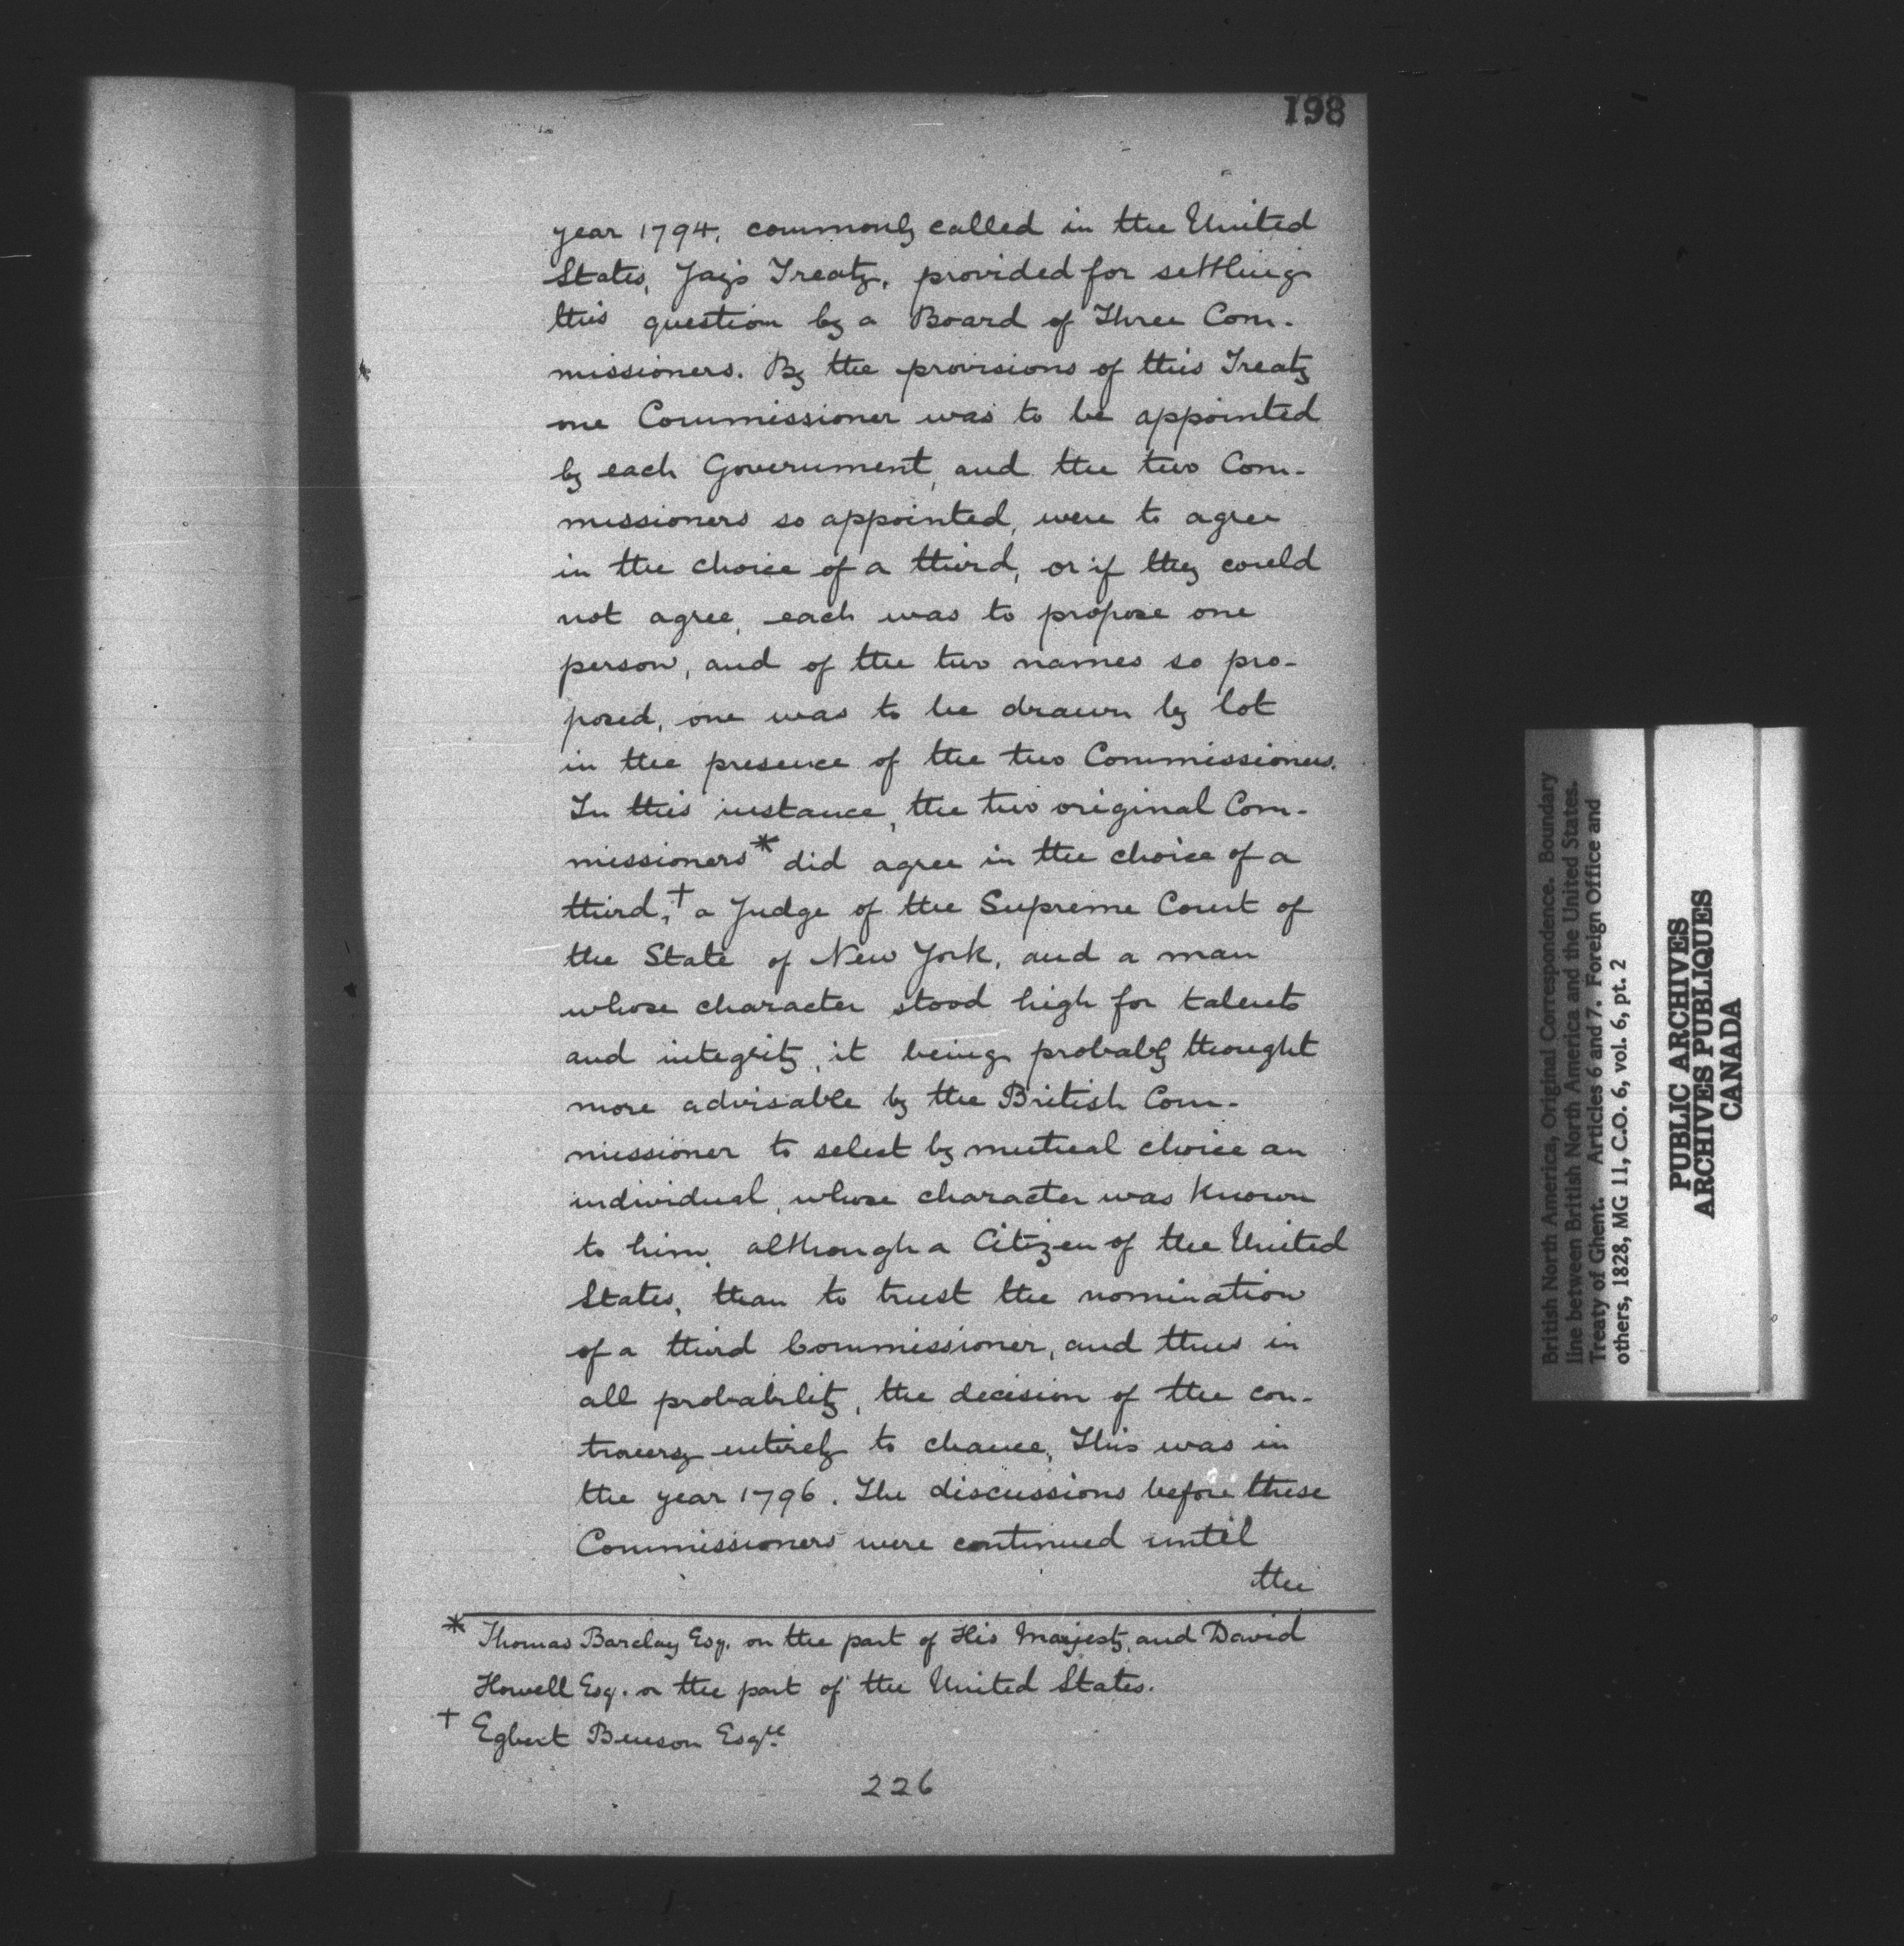 198
year 1794, commonly called in the United
States, Jay's Treaty, provided for settling
this question by a Board of Three Com-
missioners. By the provisions of this Treaty
one Commissioner was to be appointed
by each Government, and the two Com-
missioners so appointed, were to agree
in the choice of a third, or if they could
not agree, each was to propose one
person, and of the two names so pro-
posed, one was to be drawn by lot
in the presence of the two Commissioners.
In this instance, the two original Com-
missioners* did agree in the choice of a
third,† a Judge of the Supreme Court of
the State of New York, and a man
whose character stood high for talents
and integrity, it being probably thought
more advisable by the British Com-
missioner to select by mutual choice an
individual, whose character was known
to him, although a Citizen of the United
States, than to trust the nomination
of a third Commissioner, and thus in
all probability, the decision of the con-
troversy entirely to chance. This was in
the year 1796. The discussions before these
Commissioners were continued until
the
* Thomas Barclay Esq. on the part of His Majesty, and David
Howell Esq. on the part of the United States.
† Egbert Benson Esqre
226
British North America, Original Correspondence. Boundary
line between British North America and the United States.
Treaty of Ghent. Articles 6 and 7. Foreign Office and
others, 1828, MG 11, C.O. 6, vol. 6, pt. 2
PUBLIC ARCHIVES
ARCHIVES PUBLIQUES
CANADA